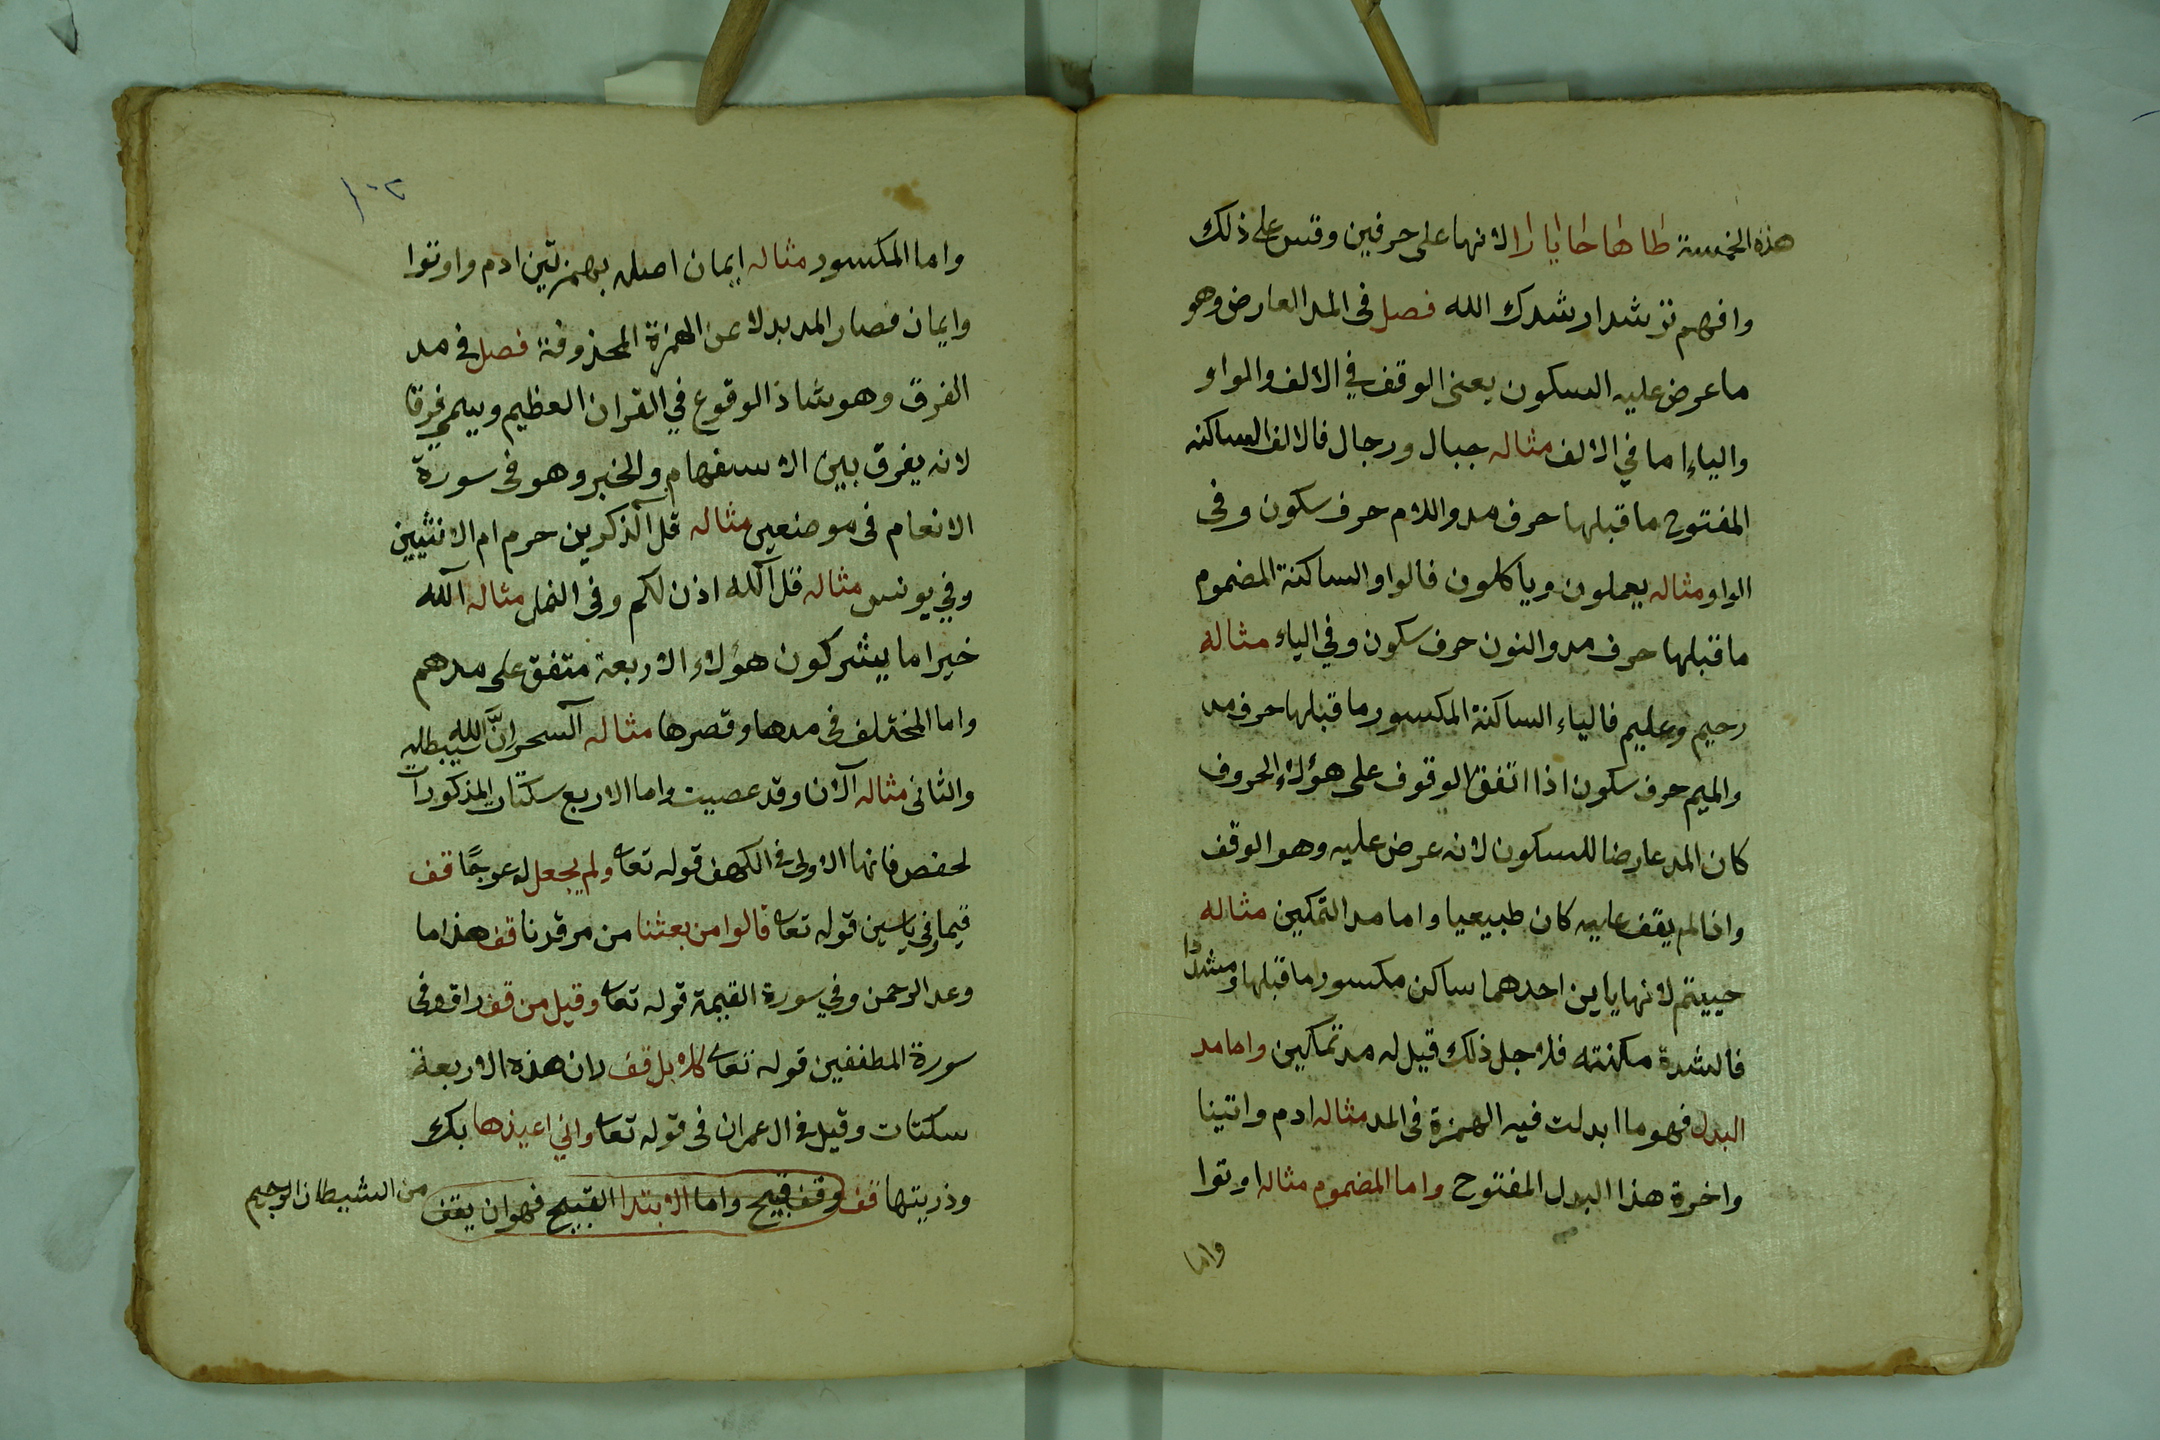 هذه الخمسة طا ها حا يا را لانها على حرفين وقس على ذلك
وافهم ترشد ارشدك الله فصل فى المد العارض وهو
ما عرض عليه السكون يعنى الوقف في الالف والواو
والياء اما في الالف مثاله جبال ورجال فالالف الساكنه
المفتوح ما قبلها حرف مد واللام حرف سكون وفى
الواو مثاله يعملون وياكلون فالواو الساكنة المضموم
ما قبلها حرف مد والنون حرف سكون وفي الياء مثاله
رحيم وعليم فالياء الساكنة المكسور ما قبلها حرف مد
والميم حرف سكون اذا اتفق الوقوف على هؤلاء الحروف
كان المد عارضا للسكون لانه عرض عليه وهو الوقف
واذا لم يقف عليه كان طبيعيا واما مد التمكين مثاله
حييتم لانها ياين احدهما ساكن مكسور ما قبلها ومشددا
فالشدة مكنته فلاجل ذلك قيل له مد تمكين واما مد
البدل فهو ما ابدلت فيه الهمزة فى المد مثاله ادم واتينا
واخرة هذا البدل المفتوح واما المضموم مثاله اوتوا
واما
١٠٢
واما المكسور مثاله ايمان اصله بهمزتين ادم واوتوا
وايمان فصار المد بدلا عن الهمزة المحذوفة فصل في مد
الفرق وهو شاذ الوقوع في القران العظيم ويسمى فرقا
لانه يفرق بين الاسفهام والخبر وهو فى سورة
الانعام فى موضعين مثاله قل آلذكرين حرم ام الانثيين
وفي يونس مثاله قل آلله اذن لكم وفى النمل مثاله آلله
خير اما يشركون هؤلاء الاربعة متفق على مدهم
واما المختلف فى مدها وقصرها مثاله آلسحر انّ الله سيبطله
والثانى مثاله آلان وقد عصيت واما الاربع سكتات المذكورات
لحفص فانها الاولى فى الكهف قوله تعا ولم يجعل له عوجًا قف
قيما وفى ياسين قوله تعا قالوا من بعثنا من مرقدنا قف هذا ما
وعد الرحمن وفي سورة القيمة قوله تعا وقيل من قف راق وفى
سورة المطففين قوله تعا كلا بل قف ران هذه الاربعة
سكتات وقيل فى ال عمران فى قوله تعا واني اعيذها بك
وذريتها قف وقف قبيح واما الابتدا القبيح فهو ان يقف من الشيطان الرجيم